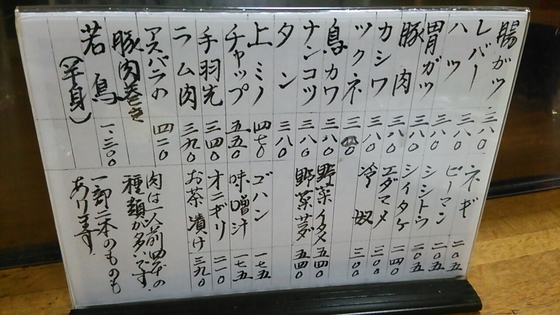 腸ガツ 三八〇
レバー 三八〇
ハツ 三八〇
胃ガツ 三八〇
豚肉 三八〇
カシワ 三八〇
ツクネ
鳥カワ 三八〇
ナンコツ 三八〇
タン 三八〇
上ミノ 四七〇
チャップ 五五〇
手羽先 三四〇
ラム肉 三九〇
アスパラの
豚肉巻き 四二〇
若鳥
(半身) 一、三〇〇
ネギ 二〇五
ピーマン 二〇五
シシトウ 二〇五
シイタケ 二四〇
エダマメ 三一〇
冷奴 三〇〇
野菜イタメ 五四〇
野菜サラダ 五四〇
ゴハン 一七五
味噌汁 一七五
オニギリ 二一〇
お茶漬け 三九〇
肉は一人前四本の
種類が多いです。
一部二本のものも
あります。